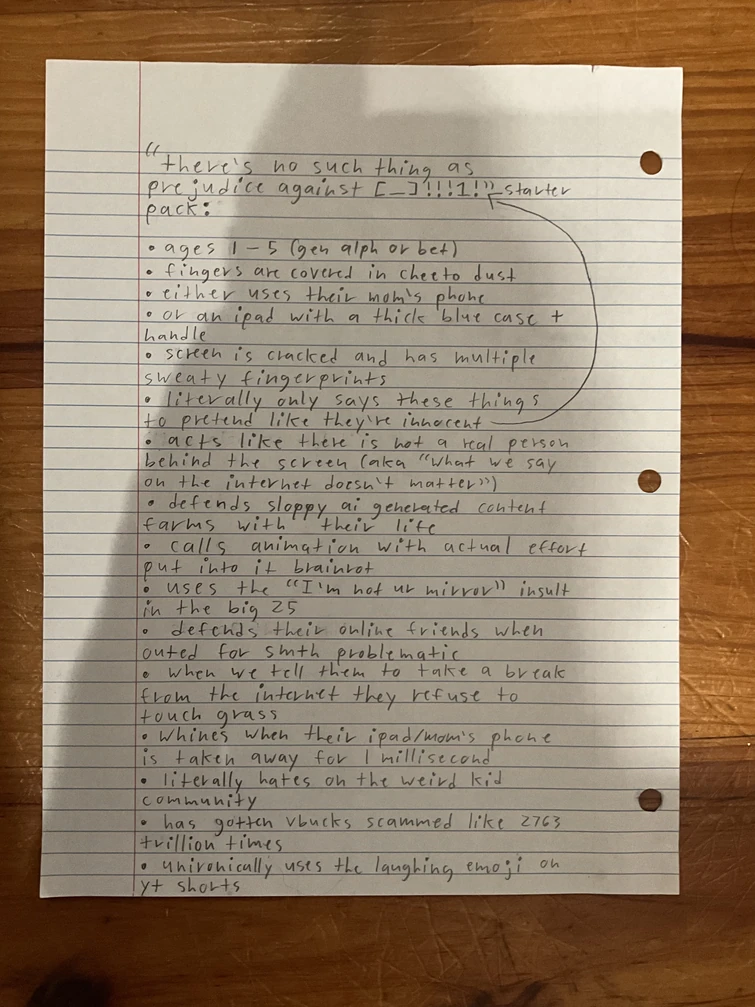 "there's no such thing as
prejudice against [_]!!!1!"starter
pack:
• ages 1-5 (gen alph or bet)
• fingers are covered in cheeto dust
• either uses their mom's phone
• or an ipad with a thick blue case +
handle
• screen is cracked and has multiple
sweaty fingerprints
• literally only says these things
to pretend like they're innocent
• acts like there is not a real person
behind the screen (aka "what we say
on the internet doesn't matter")
• defends sloppy ai generated content
farms with their life
• calls animation with actual effort
put into it brainrot
• uses the "I'm not ur mirror" insult
in the big 25
• defends their online friends when
outed for smth problematic
• when we tell them to take a break
from the internet they refuse to
touch grass
• whines when their ipad/mom's phone
is taken away for 1 millisecond
• literally hates on the weird kid
community
• has gotten vbucks scammed like 2763
trillion times
• unironically uses the laughing emoji on
yt shorts